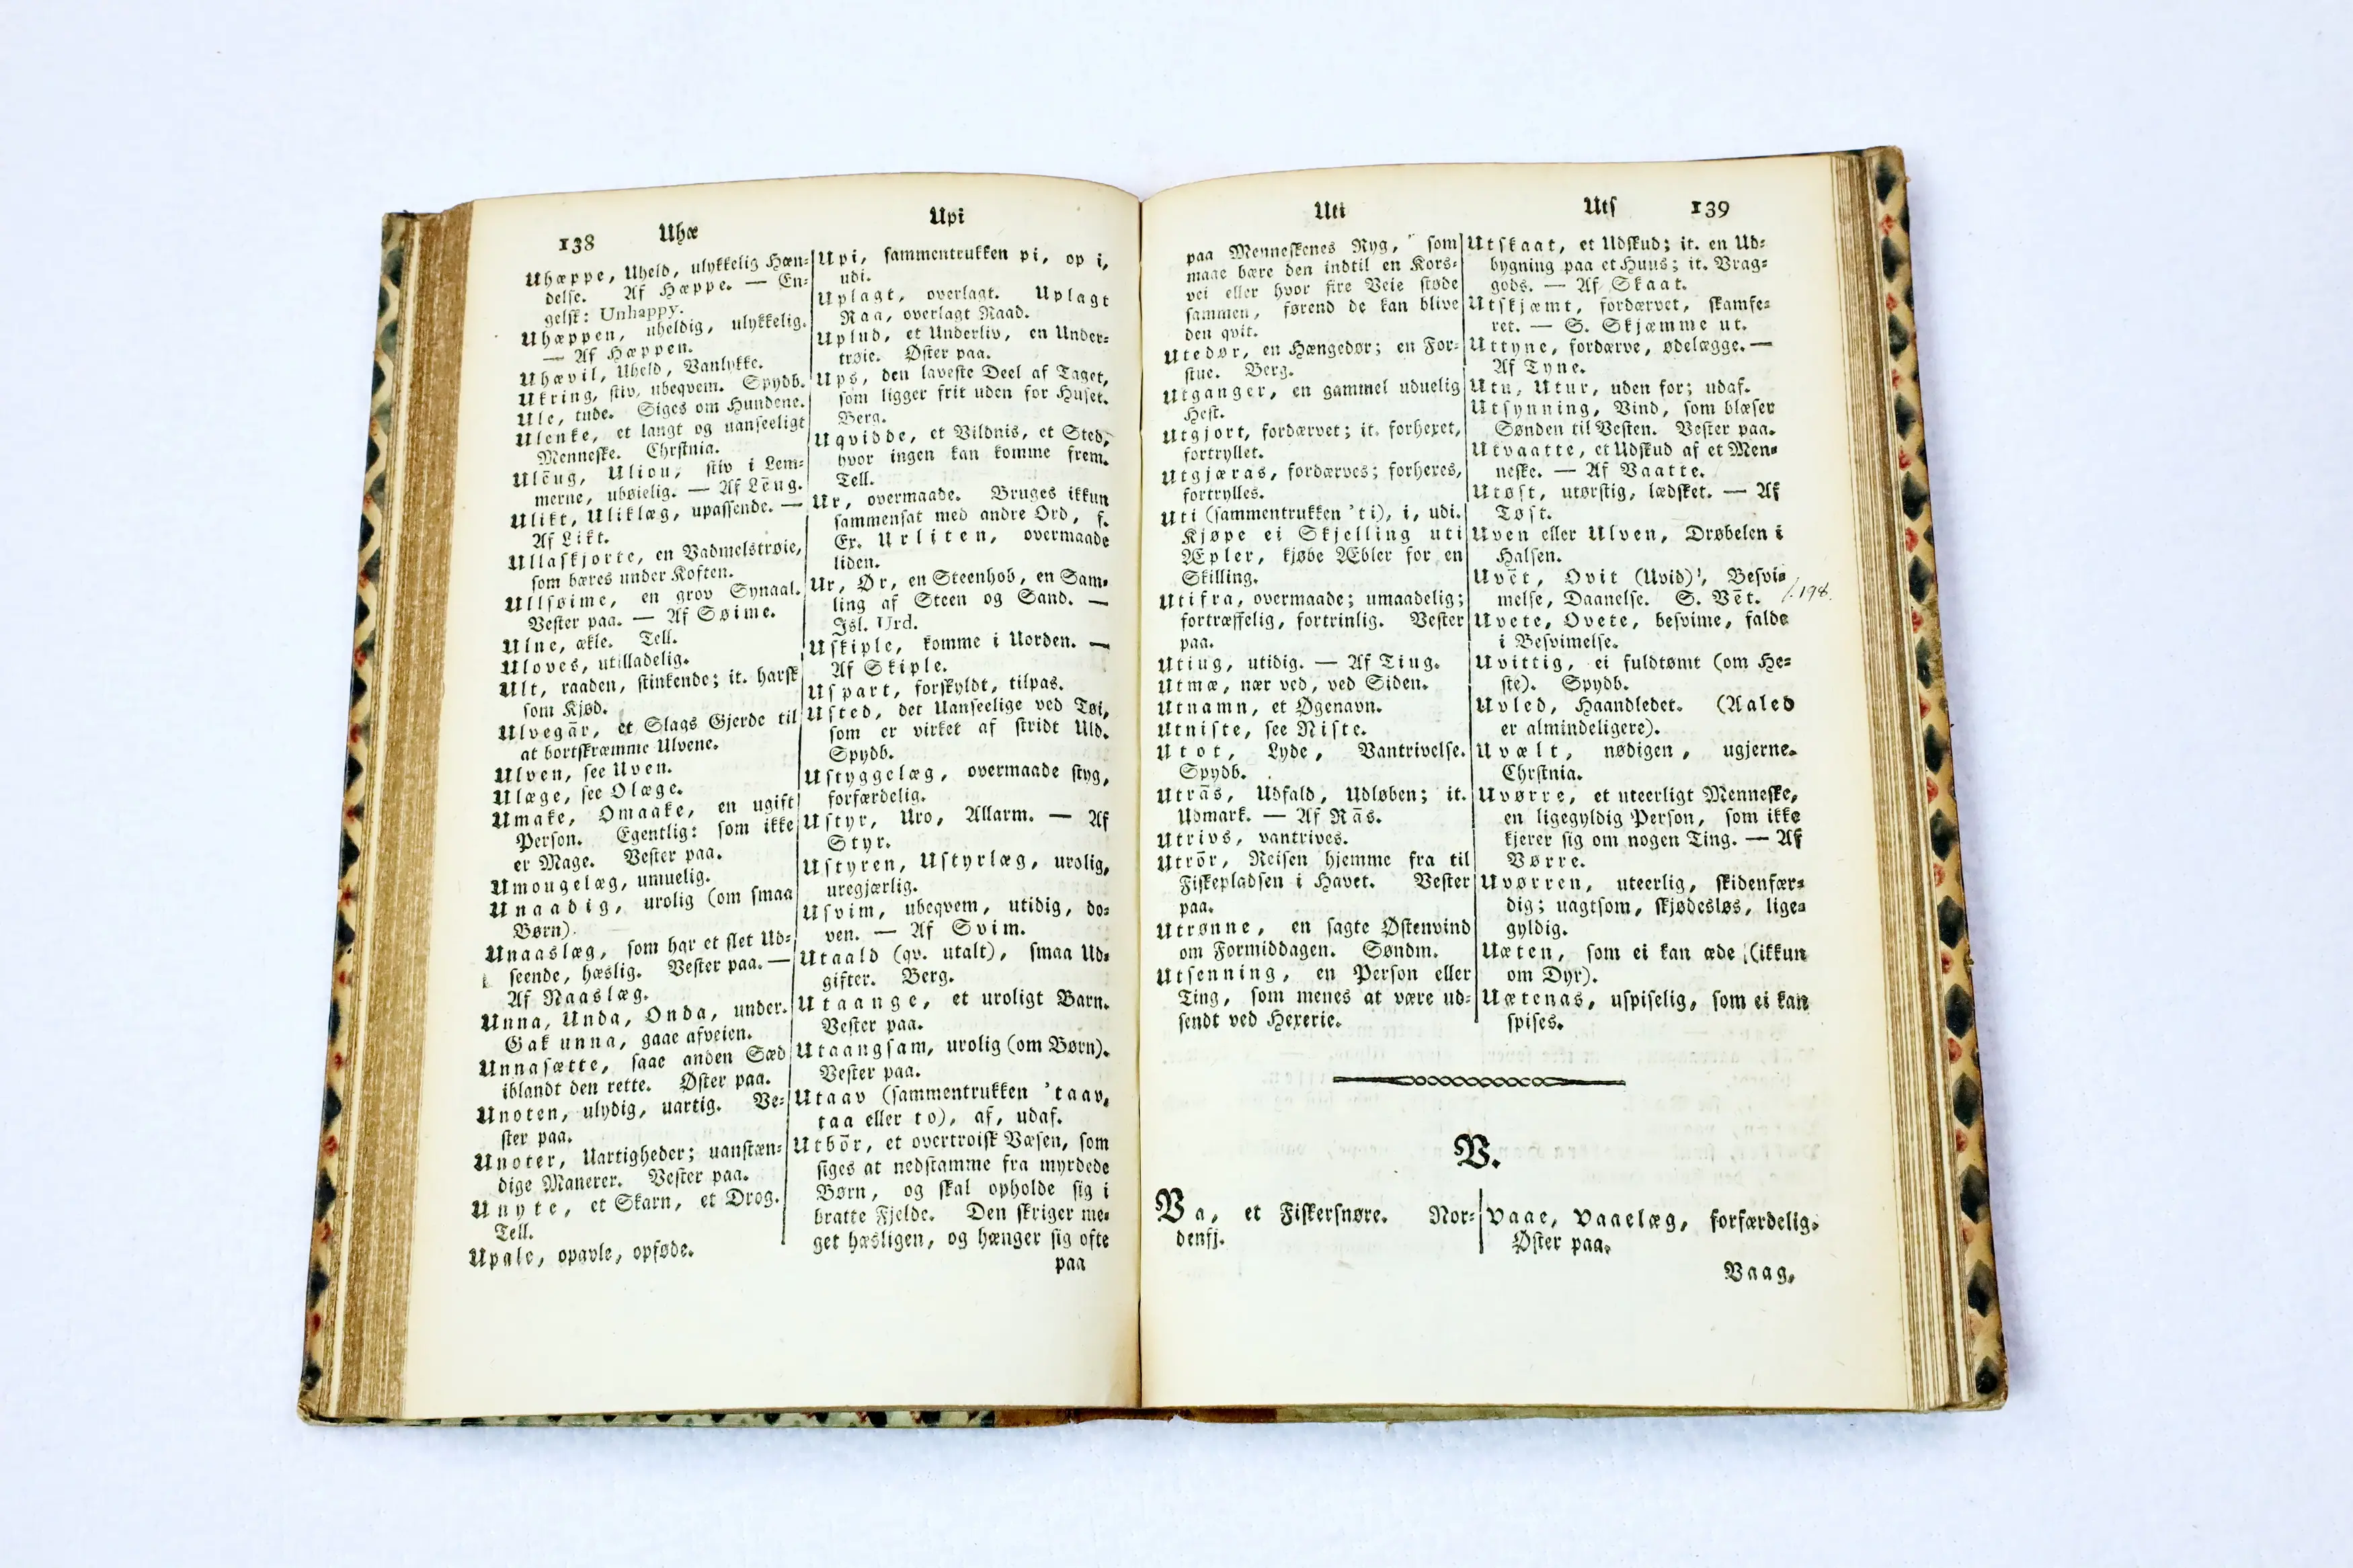 138 Uhæ
Upi
Uhæppe, Uheld, ulykkelig Hæn-
delse. Af Hæppe. — En-
gelsk: Unhappy.
Uhæppen, uheldig, ulykkelig.
— Af Hæppen.
Uhævil, Uheld, Vanlykke.
Ukring, stiv, ubeqvem. Spydb.
Ule, tude. Siges om Hundene.
Ulenke, et langt og uanseeligt
Menneske. Chrstnia.
Ulēug, Uliou, stiv i Lem-
merne, ubøielig. — Af Lēug.
Ulikt, Uliklæg, upassende. —
Af Likt.
Ullaskjorte, en Vadmelstrøie,
som bæres under Koften.
Ullsøime, en grov Synaal.
Vester paa. — Af Søime.
Ulne, ækle. Tell.
Uloves, utilladelig.
Ult, raaden, stinkende; it. harsk
som Kjød.
Ulvegār, et Slags Gjerde til
at bortskræmme Ulvene.
Ulven, see Uven.
Ulæge, see Olæge.
Umake, Omaake, en ugift
Person. Egentlig: som ikke
er Mage. Vester paa.
Umougelæg, umuelig.
Unaadig, urolig (om smaa
Børn).
Unaaslæg, som har et slet Ud-
seende, hæslig. Vester paa. —
Af Naaslæg.
Unna, Unda, Onda, under.
Gak unna, gaae afveien.
Unnasætte, saae anden Sæd
iblandt den rette. Øster paa.
Unoten, ulydig, uartig. Ve-
ster paa.
Unoter, Uartigheder; uanstæn-
dige Manerer. Vester paa.
Unyte, et Skarn, et Drog.
Tell.
Upale, opavle, opføde.
Upi, sammentrukken pi, op i,
udi.
Uplagt, overlagt. Uplagt
Raa, overlagt Raad.
Uplud, et Underliv, en Under-
trøie. Øster paa.
Ups, den laveste Deel af Taget,
som ligger frit uden for Huset.
Berg.
Uqvidde, et Vildnis, et Sted,
hvor ingen kan komme frem.
Tell.
Ur, overmaade. Bruges ikkun
sammensat med andre Ord, f.
Ex. Urliten, overmaade
liden.
Ur, Ør, en Steenhob, en Sam-
ling af Steen og Sand. —
Isl. Urd.
Uskiple, komme i Uorden. —
Af Skiple.
Uspart, forskyldt, tilpas.
Usted, det Uanseelige ved Tøi,
som er virket af stridt Uld.
Spydb.
Ustyggelæg, overmaade styg,
forfærdelig.
Ustyr, Uro, Allarm. — Af
Styr.
Ustyren, Ustyrlæg, urolig,
uregjærlig.
Usvim, ubeqvem, utidig, do-
ven. — Af Svim.
Utaald (qv. utalt), smaa Ud-
gifter. Berg.
Utaange, et uroligt Barn.
Vester paa.
Utaangsam, urolig (om Børn).
Vester paa.
Utaav (sammentrukken 'taav,
taa eller to), af, udaf.
Utbōr, et overtroisk Væsen, som
siges at nedstamme fra myrdede
Børn, og skal opholde sig i
bratte Fjelde. Den skriger me-
get hæsligen, og hænger sig ofte
paa
Uti
Uts 139
paa Menneskenes Ryg, som
maae bære den indtil en Kors-
vei eller hvor fire Veie støde
sammen, førend de kan blive
den qvit.
Utedør, en Hængedør; en For-
stue. Berg.
Utganger, en gammel uduelig
Hest.
Utgjort, fordærvet; it. forhexet,
fortryllet.
Utgjæras, fordærves; forhexes,
fortrylles.
Uti (sammentrukken 'ti), i, udi.
Kjøpe ei Skjelling uti
Æpler, kjøbe Æbler for en
Skilling.
Utifra, overmaade; umaadelig;
fortræffelig, fortrinlig. Vester
paa.
Utiug, utidig. — Af Tiug.
Utmæ, nær ved, ved Siden.
Utnamn, et Øgenavn.
Utniste, see Niste.
Utot, Lyde, Vantrivelse.
Spydb.
Utrās, Udfald, Udløben; it.
Udmark. — Af Rās.
Utrivs, vantrives.
Utrōr, Reisen hjemme fra til
Fiskepladsen i Havet. Vester
paa.
Utrønne, en sagte Østenvind
om Formiddagen. Søndm.
Utsenning, en Person eller
Ting, som menes at være ud-
sendt ved Hexerie.
Utskaat, et Udskud; it. en Ud-
bygning paa et Huus; it. Vrag-
gods. — Af Skaat.
Utskjæmt, fordærvet, skamfe-
ret. — S. Skjæmme ut.
Uttyne, fordærve, ødelægge. —
Af Tyne.
Utu, Utur, uden for; udaf.
Utsynning, Vind, som blæser
Sønden til Vesten. Vester paa.
Utvaatte, et Udskud af et Men-
neske. — Af Vaatte.
Utøst, utørstig, lædsket. — Af
Tøst.
Uven eller Ulven, Drøbelen i
Halsen.
Uvēt, Ovit (Uvid), Besvi-
melse, Daanelse. S. Vēt. /. 198.
Uvete, Ovete, besvime, falde
i Besvimelse.
Uvittig, ei fuldtømt (om He-
ste). Spydb.
Uvled, Haandledet. (Aaled
er almindeligere).
Uvælt, nødigen, ugjerne.
Chrstnia.
Uvørre, et uteerligt Menneske,
en ligegyldig Person, som ikke
kjerer sig om nogen Ting. — Af
Vørre.
Uvørren, uteerlig, skidenfær-
dig; uagtsom, skjødesløs, lige-
gyldig.
Uæten, som ei kan æde (ikkun
om Dyr).
Uætenas, uspiselig, som ei kan
spises.
V.
Va, et Fiskersnøre. Nor-
denfj.
Vaae, Vaaelæg, forfærdelig.
Øster paa.
Vaag,